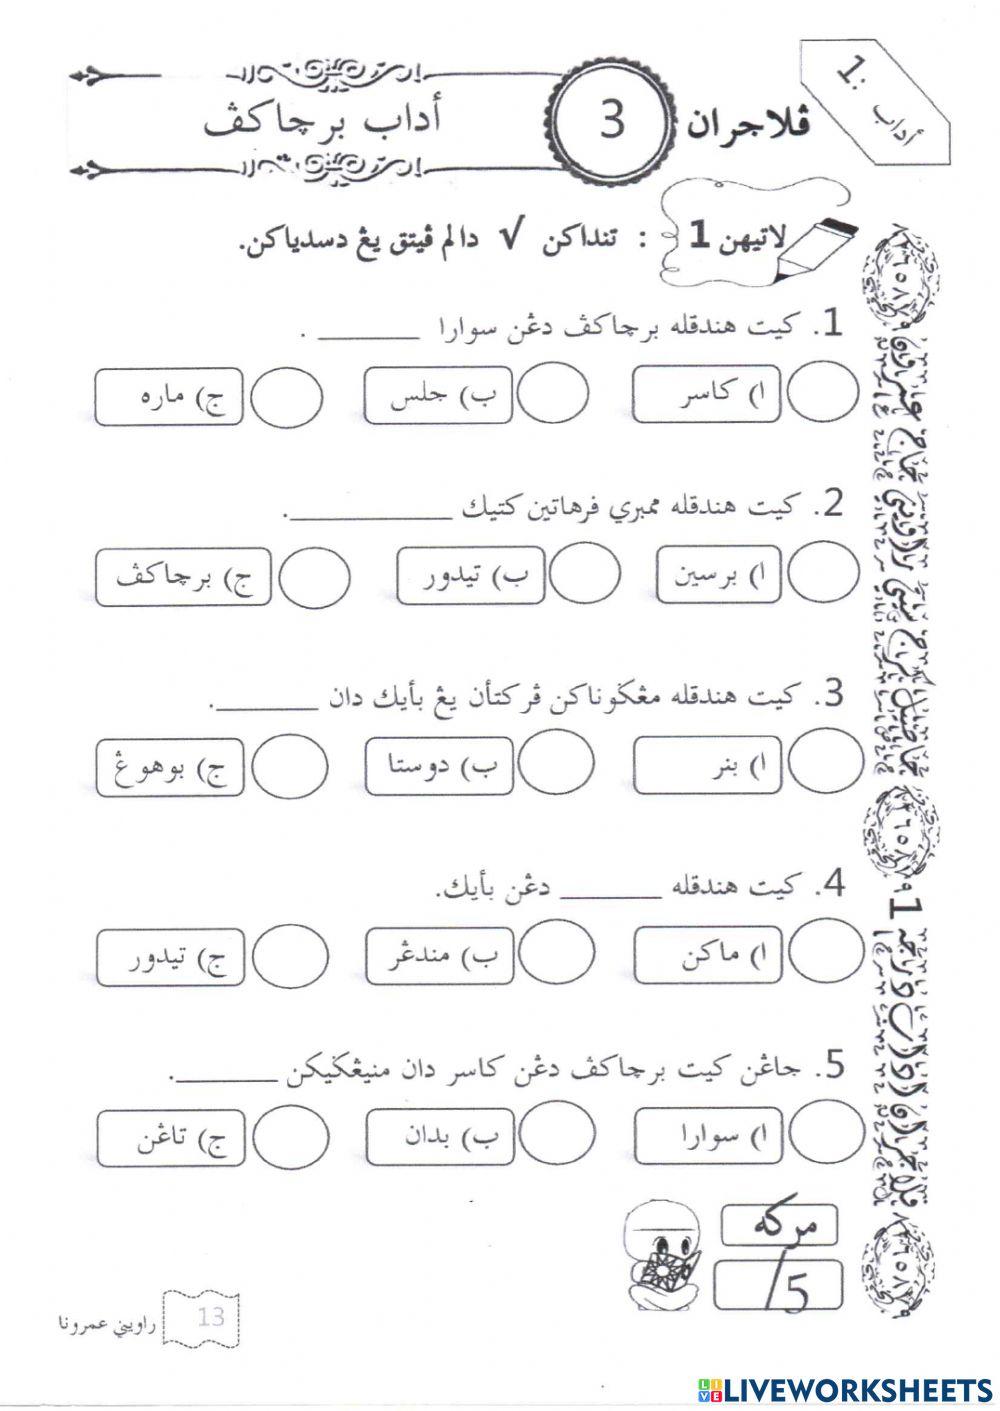 أداب :1
ڤلاجران 3 أداب برچاكڤ
لاتيهن 1 : تنداكن √ دالم ڤيتق يڠ دسدياكن.
1. كيت هندقله برچاكڤ دڠن سوارا ________ .
ا) كاسر ب) جلس ج) ماره
2. كيت هندقله ممبري فرهاتين كتيك ____________.
ا) برسين ب) تيدور ج) برچاكڤ
3. كيت هندقله مڠݢوناكن ڤركتأن يڠ بأيك دان ________.
ا) بنر ب) دوستا ج) بوهوڠ
4. كيت هندقله ________ دڠن بأيك.
ا) ماكن ب) مندڠر ج) تيدور
5. جاڠن كيت برچاكڤ دڠن كاسر دان منيڠݢيكن ________.
ا) سوارا ب) بدان ج) تاڠن
مركه
/5
13 راويني عمرونا
LIVEWORKSHEETS